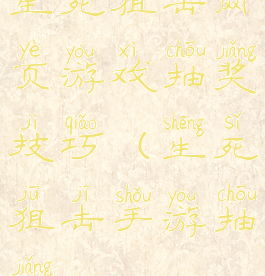 生死狙击戏
yè yóu xì chōu jiǎng
页游戏抽奖
jì qiǎo shēng sǐ
技巧（生死
jū jī shǒu yóu chōu
狙击手游抽
jiǎng